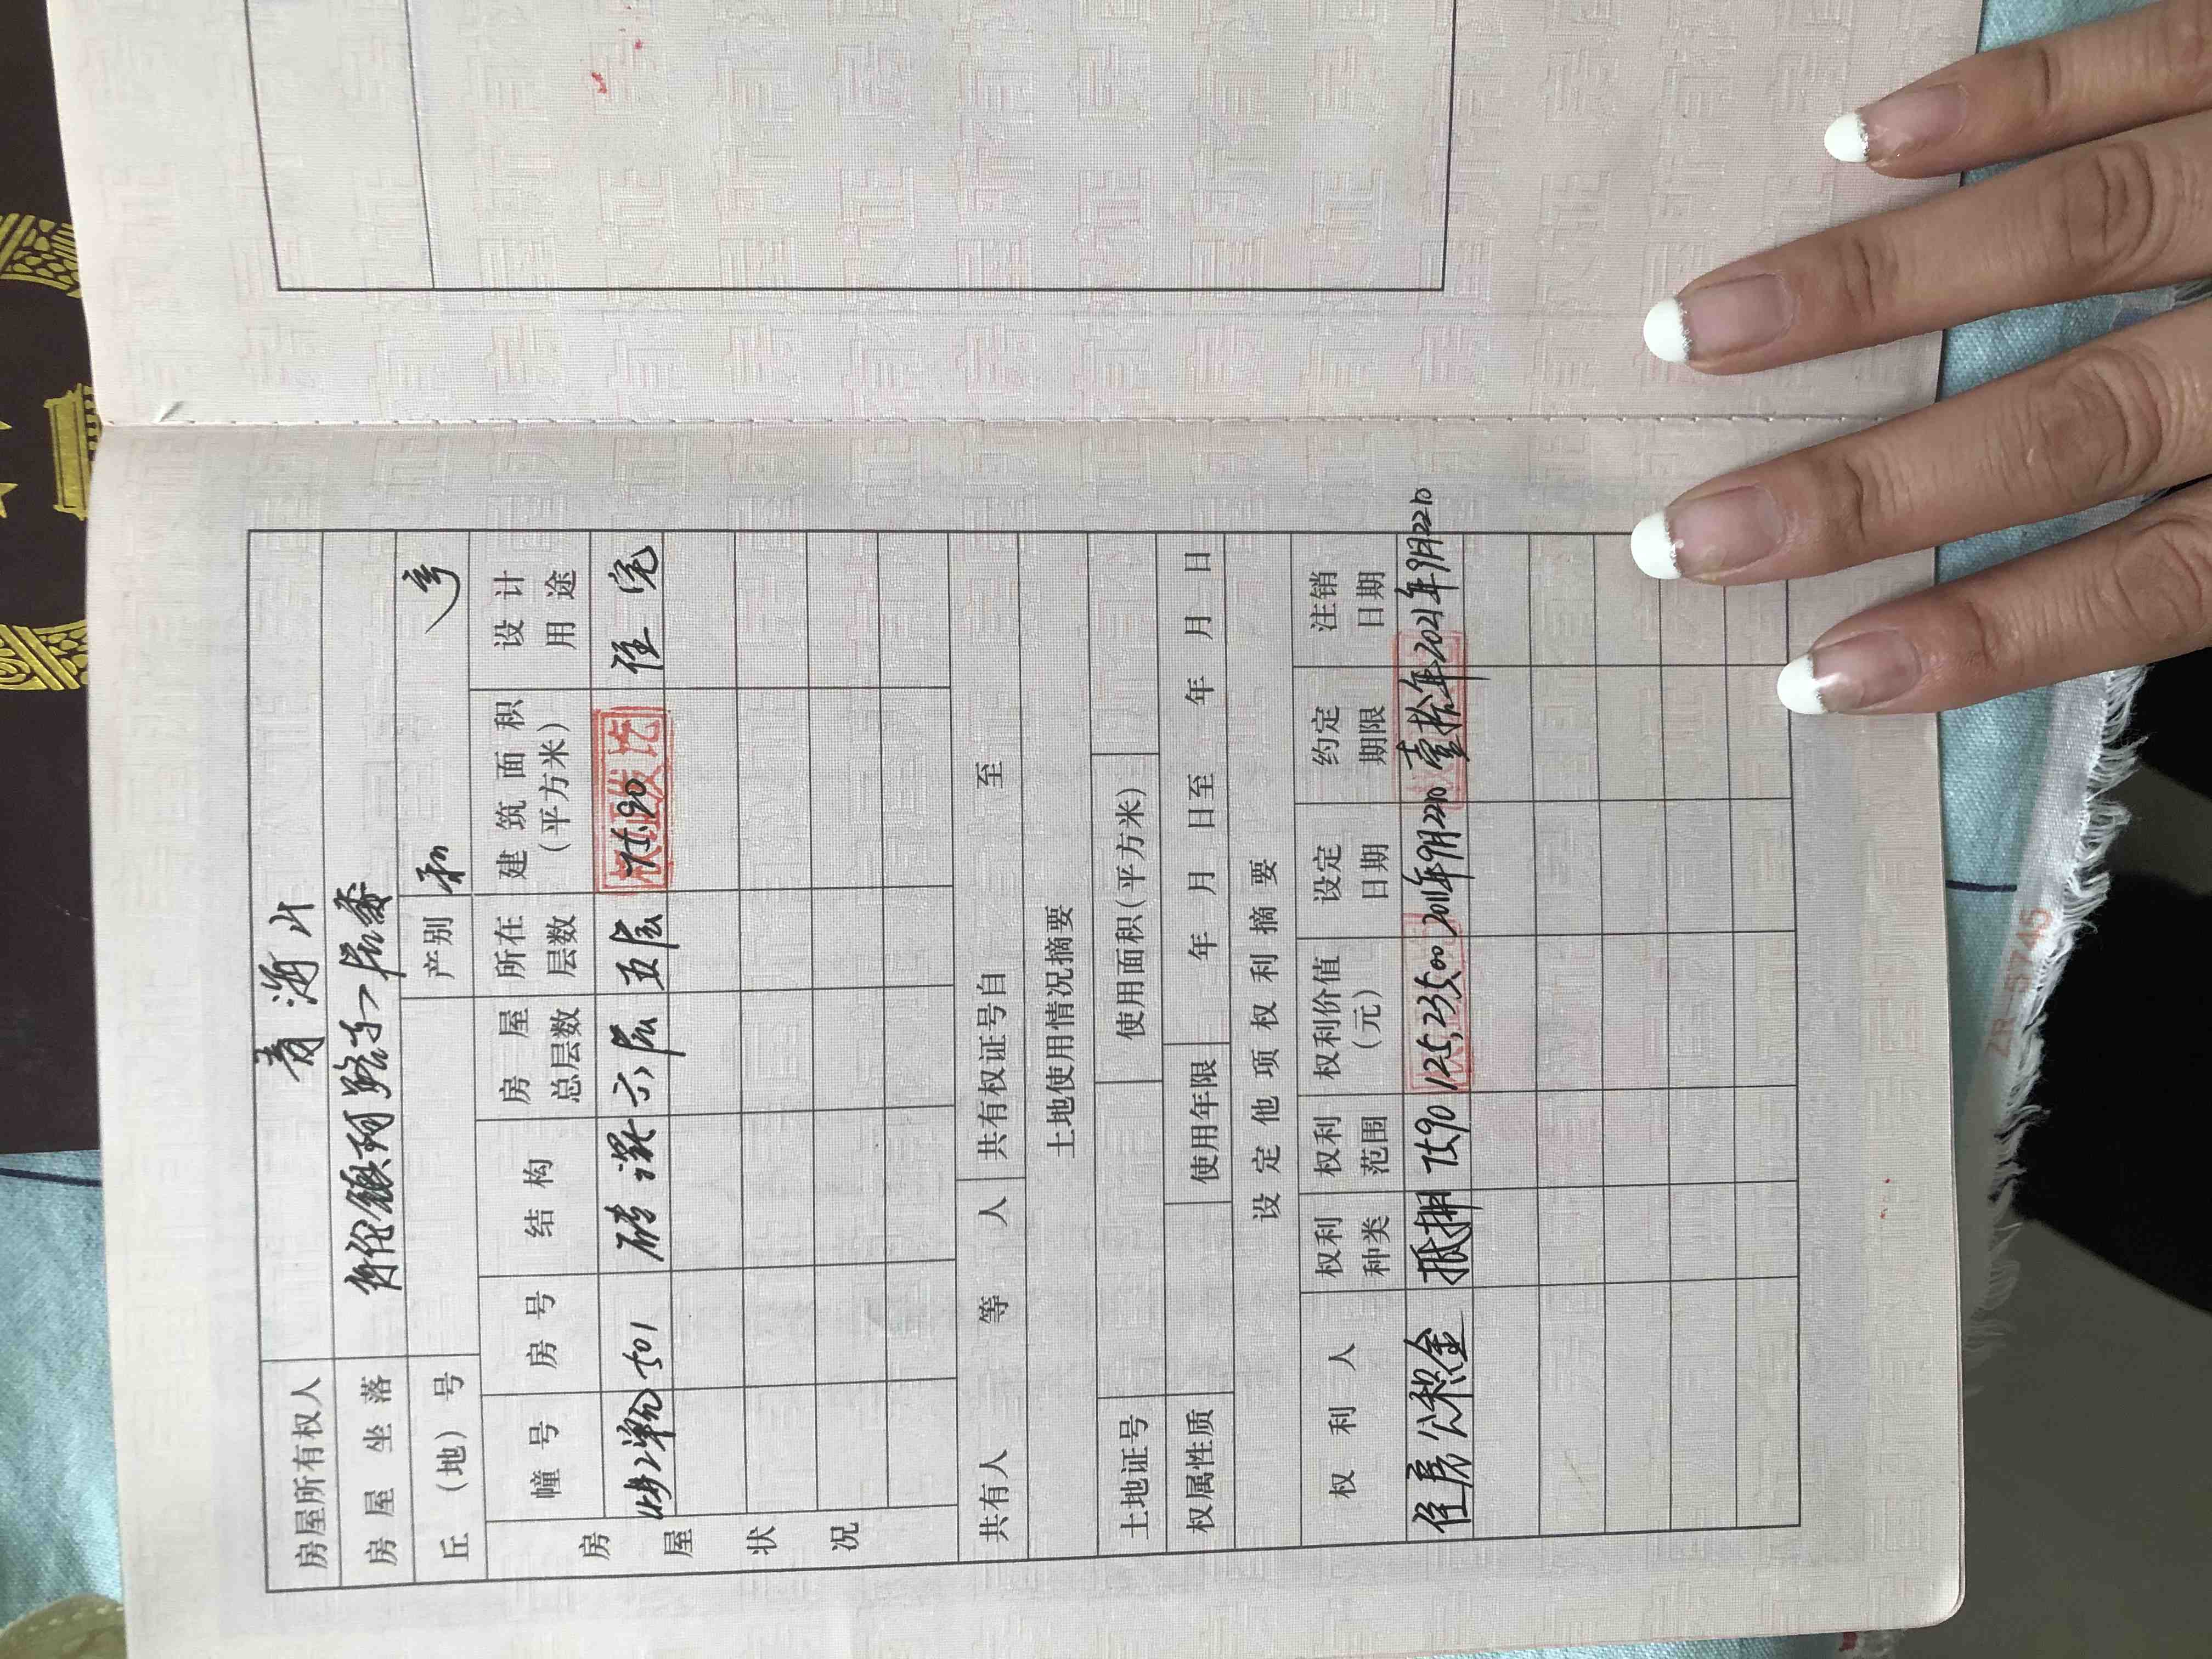 房屋所有权人 青海
房屋坐落
丘(地)号 产别 私
房屋状况
幢号 房号 结构 房屋总层数 所在层数 建筑面积(平方米) 设计用途
501 砖混 六层 五层 75.90 住宅
共有人 等 人 共有权证号自 至
土地使用情况摘要
土地证号 使用面积(平方米)
权属性质 使用年限 年 月 日至 年 月 日
设定他项权利摘要
权利人 权利种类 权利范围 权利价值(元) 设定日期 约定期限 注销日期
住房公积金 抵押 75.90 125,235.00 2011年9月22日 壹拾年 2021年9月22日
ZR-5745